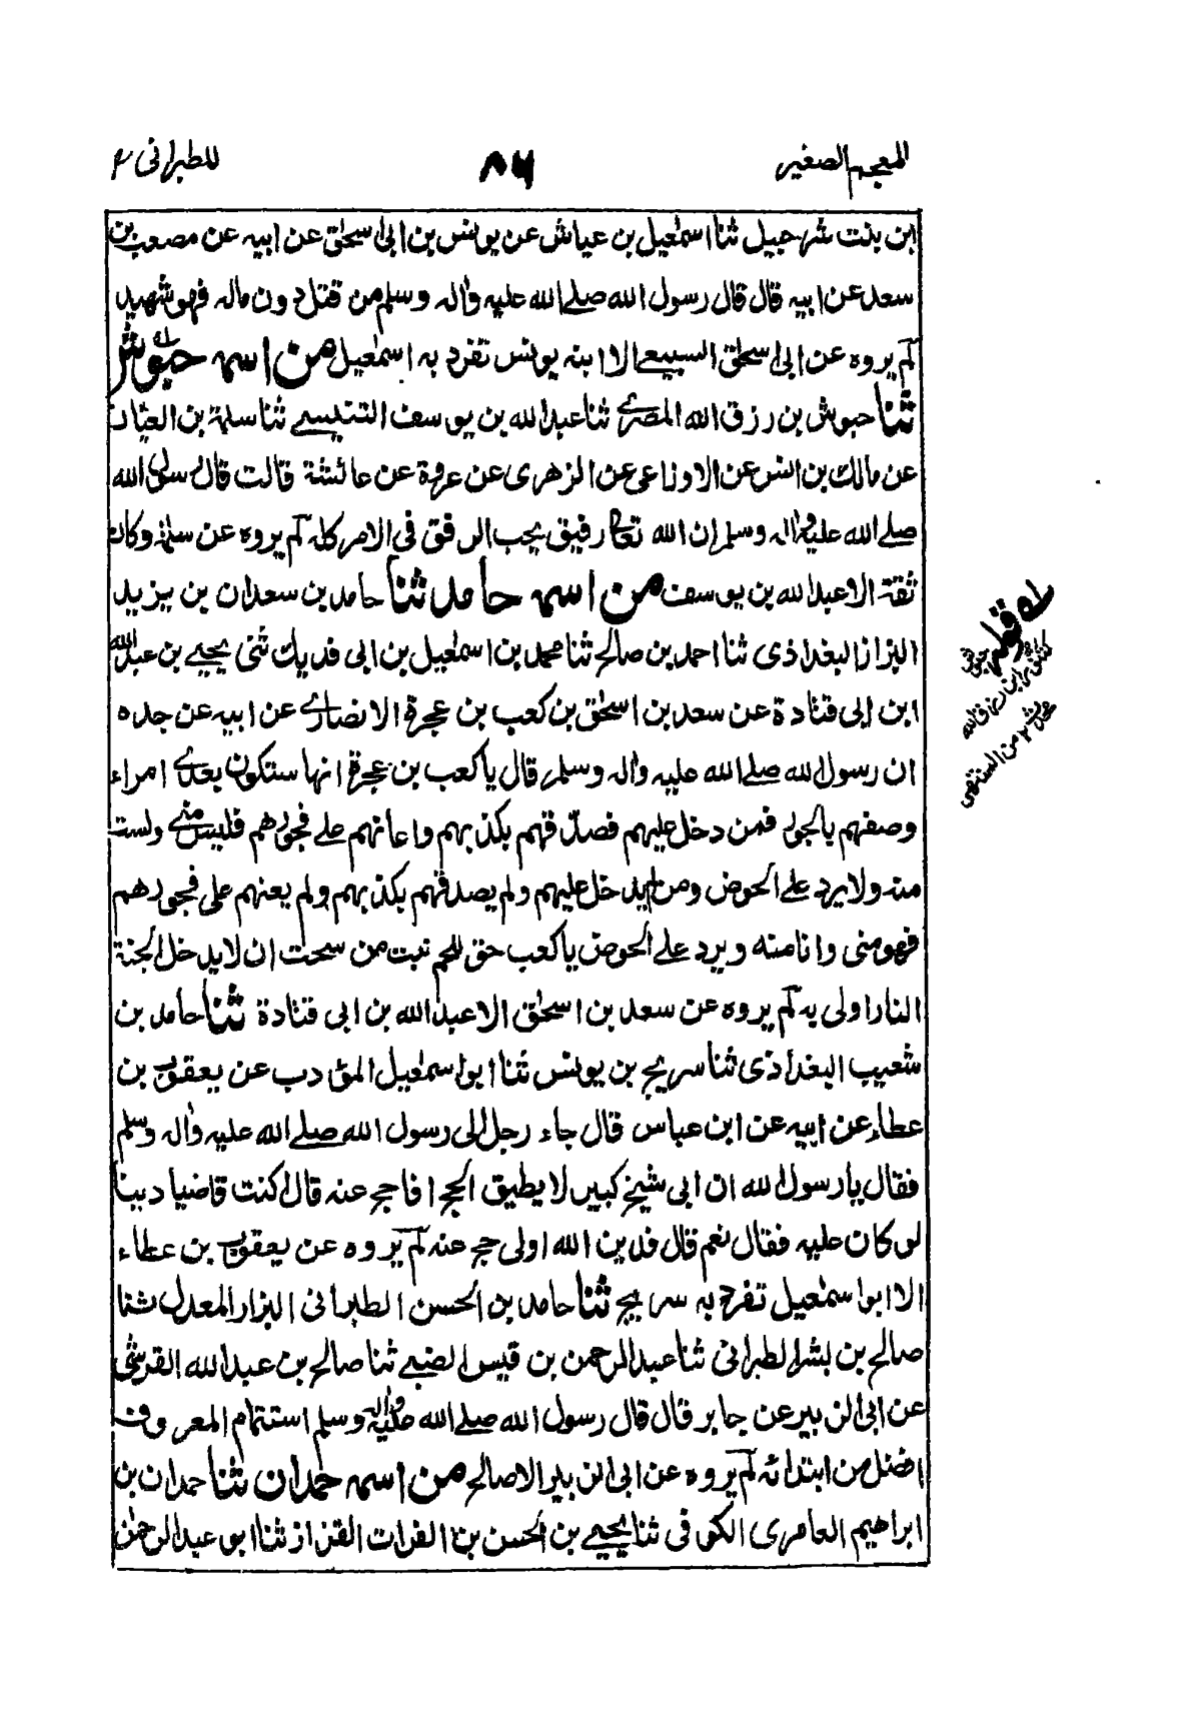 المعجم الصغير
٨٦
للطبرانی
ابن بنت شرحبيل ثنا اسمعيل بن عياش عن يونس بن ابی اسحٰق عن ابيه عن مصعب بن
سعد عن ابيه قال قال رسول الله صلے الله عليه واٰله وسلم من قتل دون ماله فهو شهيد
لم يروه عن ابی اسحٰق السبيعے الا ابنه يونس تفرد به اسمٰعيل من اسمه حبوش
ثنا حبوش بن رزق الله المصرے ثنا عبد الله بن يوسف التنيسے ثنا سلمة بن العيار
عن مالك بن انس عن الاوزاعی عن الزهری عن عروة عن عائشة قالت قال رسول الله
صلے الله عليه واٰله وسلم ان الله تعالى رفيق يحب الرفق فی الامر كله لم يروه عن سلمة وكان
ثقة الا عبد الله بن يوسف من اسمه حامد ثنا حامد بن سعدان بن يزيد
البزاز البغداذی ثنا احمد بن صالح ثنا محمد بن اسمٰعيل بن ابی فديك ثنی يحيے بن عبد الله
ابن ابی قتادة عن سعد بن اسحٰق بن كعب بن عجرة الانصارے عن ابيه عن جده
ان رسول الله صلے الله عليه واٰله وسلم قال يا كعب بن عجرة انها ستكون بعدے امراء
وصفهم بالجور فمن دخل عليهم فصدقهم بكذبهم واعانهم علے فجورهم فليس منے ولست
منه ولا يرد علے الحوض ومن لم يدخل عليهم ولم يصدقهم بكذبهم ولم يعنهم علی فجورهم
فهو منی وانا منه ويرد علے الحوض يا كعب حق للحم نبت من سحت ان لا يدخل الجنة
النار اولی به لم يروه عن سعد بن اسحٰق الا عبد الله بن ابی قتادة ثنا حامد بن
شعيب البغداذی ثنا سريج بن يونس ثنا ابو اسمٰعيل المؤدب عن يعقوب بن
عطاء عن ابيه عن ابن عباس قال جاء رجل الی رسول الله صلے الله عليه واٰله وسلم
فقال يا رسول الله ان ابی شيخ كبير لا يطيق الحج افاحج عنه قال اكنت قاضيا دينا
لو كان عليه فقال نعم قال فدين الله اولی حج عنه لم يروه عن يعقوب بن عطاء
الا ابو اسمٰعيل تفرد به سريج ثنا حامد بن الحسن الطبرانی البزار المعدل ثنا
صالح بن بشر الطبرانی ثنا عبد الرحمن بن قيس الضبے ثنا صالح بن عبد الله القرشی
عن ابی الزبير عن جابر قال قال رسول الله صلے الله عليه واٰله وسلم استتمام المعروف
افضل من ابتدائه لم يروه عن ابی الزبير الا صالح من اسمه حمدان ثنا حمدان بن
ابراهيم العامری الكوفی ثنا يحيے بن الحسن بن الفرات القزاز ثنا ابو عبد الرحمٰن
له قوله حبوش
كتنور ابن رزق الله
محدث ١٢ من المنتهی